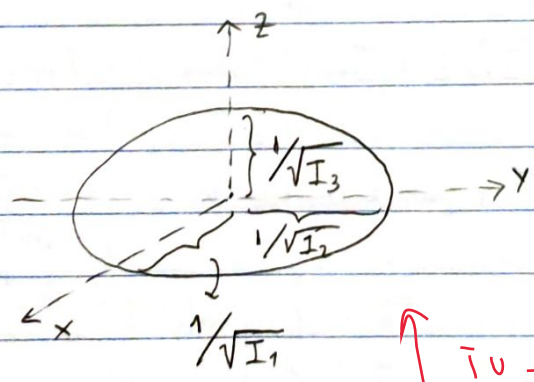 Z
1/√I₃
Y
1/√I₂
X
1/√I₁